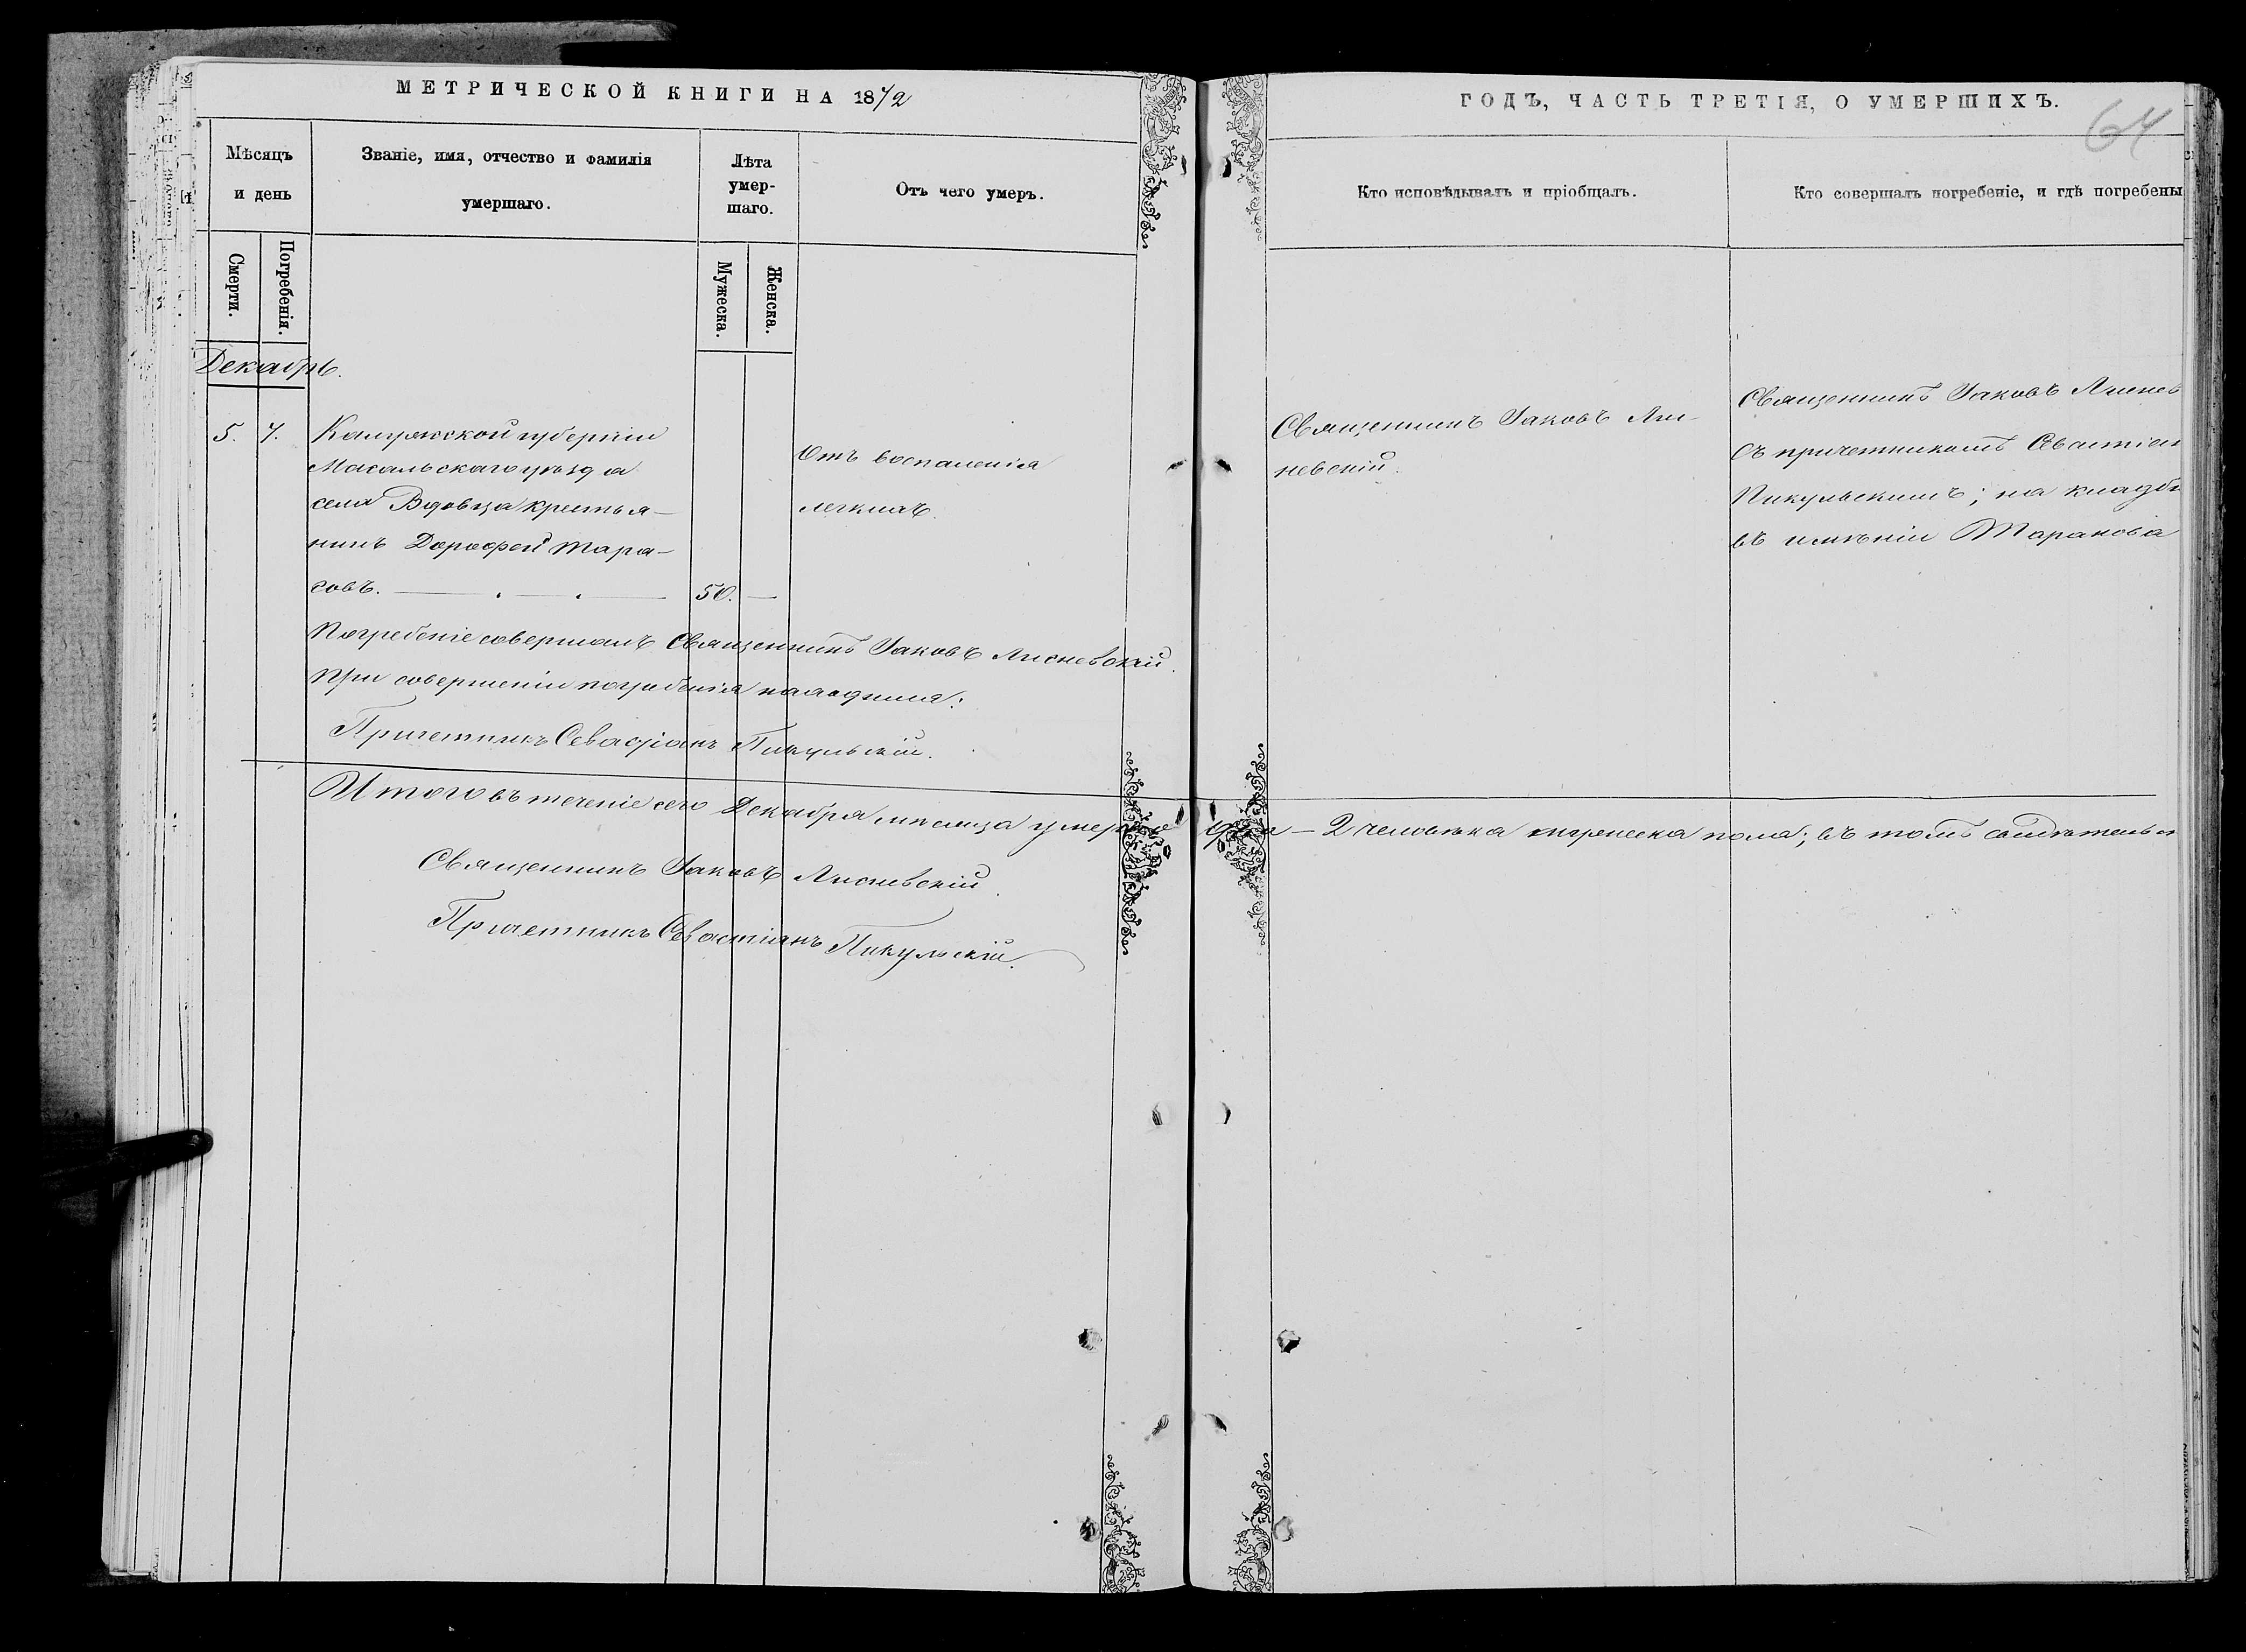 МЕТРИЧЕСКОЙ КНИГИ НА 1872
ГОДЪ, ЧАСТЬ ТРЕТІЯ, О УМЕРШИХЪ.
64
Мѣсяцъ
и день
Званіе, имя, отчество и фамилія
умершаго.
Лѣта
умер-
шаго.
Отъ чего умеръ.
Кто исповѣдывалъ и пріобщалъ.
Кто совершалъ погребеніе, и гдѣ погребены
Смерти.
Погребенія.
Мужеска.
Женска.
Декабрь.
5. 7.
Калужской губерніи
Масальскаго уѣзда
села Вдовца крестья-
нинъ Дорофей Тара-
совъ.
50. —
Отъ воспаленія
легкихъ.
Священникъ Іаковъ Лис-
невскій.
Священникъ Іаковъ Лиснев
съ причетникомъ Севастіан
Пикульскимъ; на кладби
въ имѣніи Таранова
Погребеніе совершалъ Священникъ Іаковъ Лисневскій.
При совершеніи погребенія находился:
Причетникъ Севастіанъ Пикульскій.
Итого въ теченіе сего Декабря мѣсяца умерло два — 2 человѣка мужеска пола; въ томъ свидѣтельст
Священникъ Іаковъ Лисневскій.
Причетникъ Севастіанъ Пикульскій.